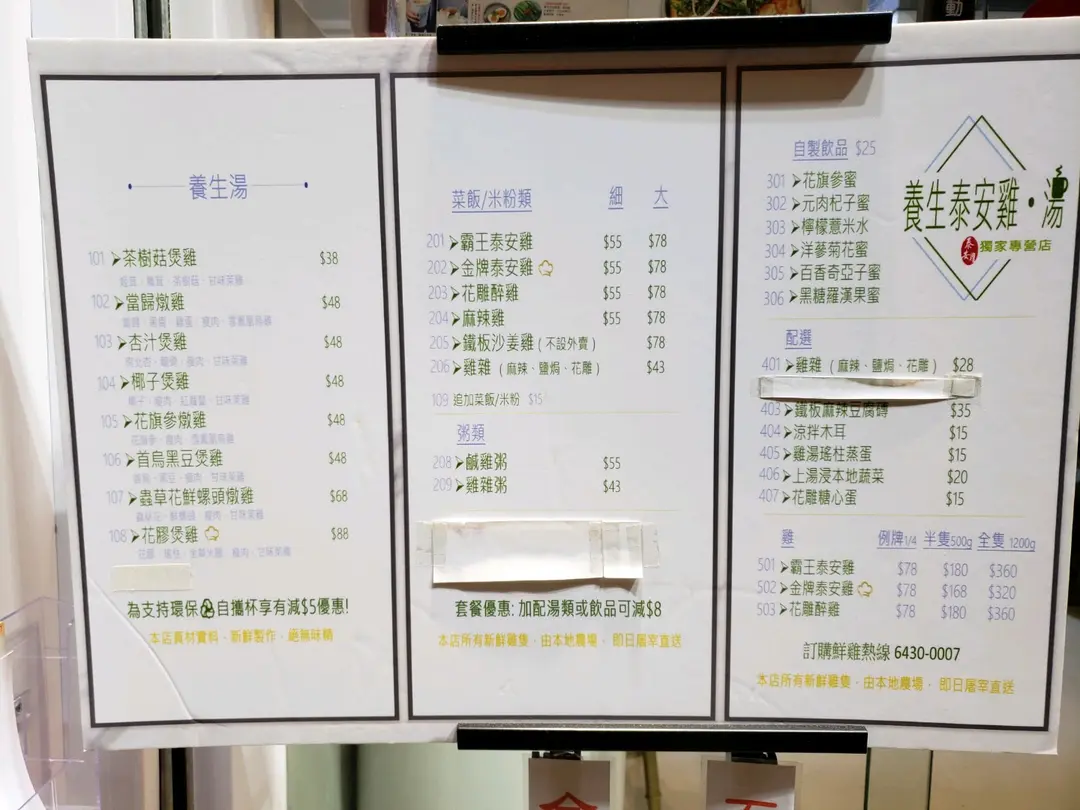 養生湯
101 ➤茶樹菇煲雞 $38
茶樹菇、甘味菜雞
102 ➤當歸燉雞 $48
103 ➤杏汁煲雞 $48
104 ➤椰子煲雞 $48
105 ➤花旗參燉雞 $48
106 ➤首烏黑豆煲雞 $48
107 ➤蟲草花鮮螺頭燉雞 $68
108 ➤花膠煲雞 $88
為支持環保 自攜杯享有減$5優惠!
本店真材實料、新鮮製作、絕無味精
菜飯/米粉類 細 大
201 ➤霸王泰安雞 $55 $78
202 ➤金牌泰安雞 $55 $78
203 ➤花雕醉雞 $55 $78
204 ➤麻辣雞 $55 $78
205 ➤鐵板沙姜雞 (不設外賣) $78
206 ➤雞雜 (麻辣、鹽焗、花雕) $43
109 追加菜飯/米粉 $15
粥類
208 ➤鹹雞粥 $55
209 ➤雞雜粥 $43
套餐優惠: 加配湯類或飲品可減$8
本店所有新鮮雞隻﹐由本地農場﹐即日屠宰直送
養生泰安雞・湯
泰安
獨家專營店
自製飲品 $25
301 ➤花旗參蜜
302 ➤元肉杞子蜜
303 ➤檸檬薏米水
304 ➤洋蔘菊花蜜
305 ➤百香奇亞子蜜
306 ➤黑糖羅漢果蜜
配選
401 ➤雞雜 (麻辣、鹽焗、花雕) $28
403 ➤鐵板麻辣豆腐磚 $35
404 ➤涼拌木耳 $15
405 ➤雞湯瑤柱蒸蛋 $15
406 ➤上湯浸本地蔬菜 $20
407 ➤花雕糖心蛋 $15
雞 例牌1/4 半隻500g 全隻 1200g
501 ➤霸王泰安雞 $78 $180 $360
502 ➤金牌泰安雞 $78 $168 $320
503 ➤花雕醉雞 $78 $180 $360
訂購鮮雞熱線 6430-0007
本店所有新鮮雞隻﹐由本地農場﹐即日屠宰直送